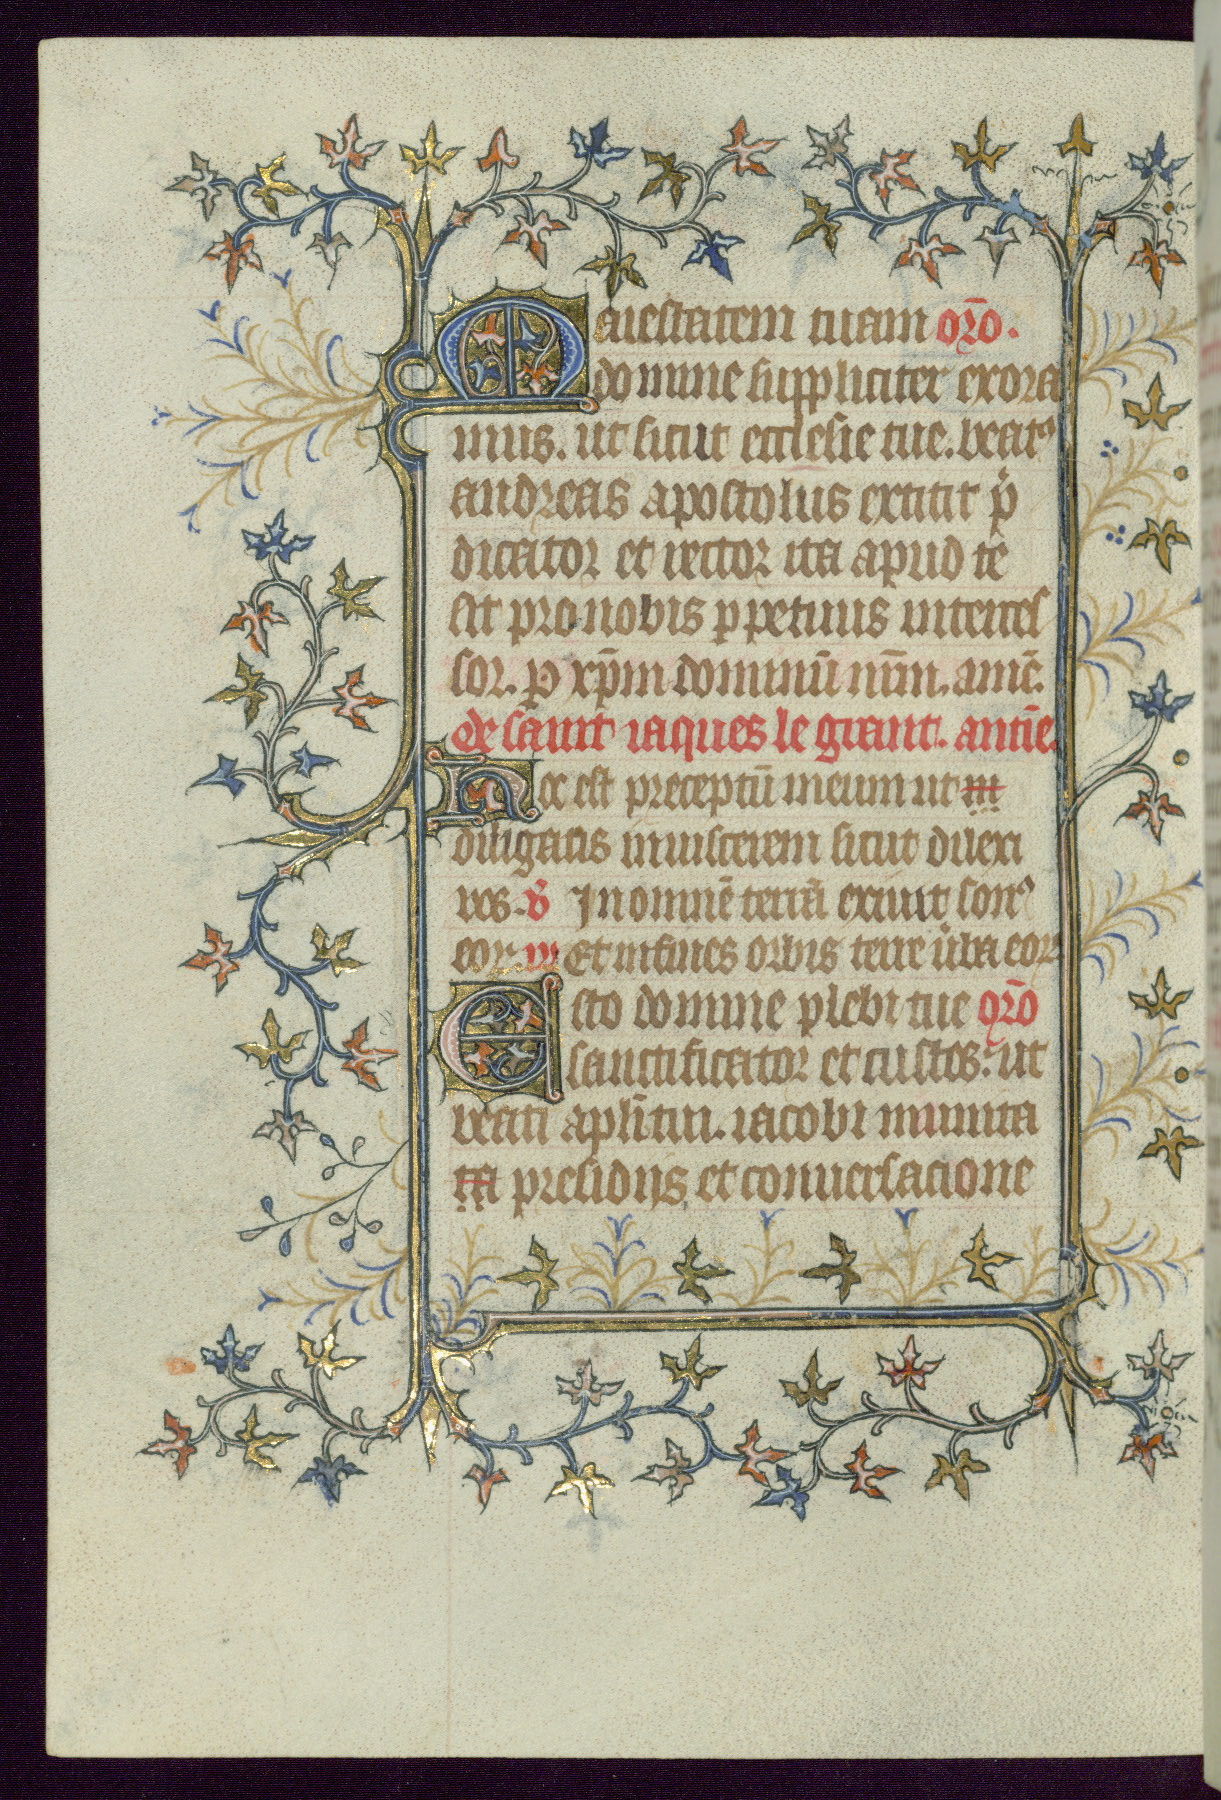 Maiestatem tuam or̄o.
domine suppliciter exora
mus. ut sicut ecclesie tue. beatꝰ
andreas apostolus extitit p̄
dicator et rector ita apud te
sit pro nobis ꝑpetuus interces
sor. ꝑ xp̄m dominū nr̄m. amē.
De saint iaques le grant. antīe.
Hec est preceptū meum ut iii
diligatis inuiscerem sicut dilexi
vos. v̄ In omnē terrā exiuit sonꝰ
eoꝝ. Et in fines orbis terre ūba eoꝝ
Esto domine plebi tue or̄o
sanctificator et custos: ut
beati apl̄i tui. iacobi munita
ta presidiis et conuersacione